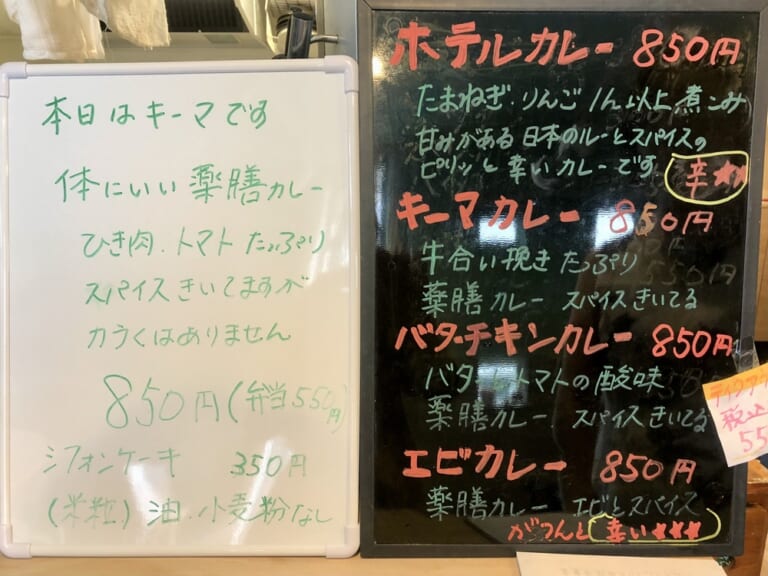 本日はキーマです
体にいい薬膳カレー
ひき肉.トマトたっぷり
スパイスきいてますが
カラくはありません
850円(弁当550円
シフォンケーキ 350円
(米粒)油.小麦粉なし
ホテルカレー 850円
たまねぎ.りんご/h以上煮こみ
甘みがある日本のルーとスパイスの
ピリッと辛いカレーです 辛★★
キーマカレー 850円
牛合い挽きたっぷり
薬膳カレー スパイスきいてる
バターチキンカレー 850円
バター トマトの酸味
薬膳カレー.スパイスきいてる
エビカレー 850円
薬膳カレー エビとスパイス
がつんと 辛い★★★
テイクアウ
税込
55